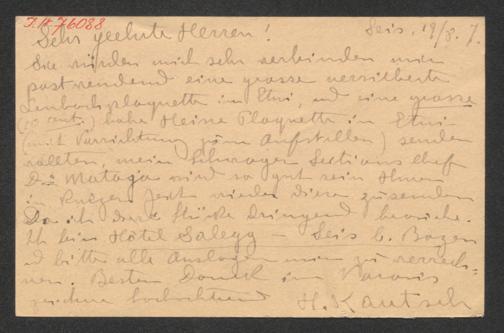 J.N 76088
Sehr geehrte Herren! Seis, 19/8. 7.
Sie würden mich sehr verbinden mir
postwendend eine grosse versilberte
Lenbachplaquette im Etui, und eine grosse
hohe Heine Plaquette im Etui
(mit Vorrichtung zum Aufstellen) senden
wollten, mein Schwager Sections Chef
Dr Mataja wird so gut sein Ihnen
in kurzer Zeit wieder diese zusenden
Da ich diese Stücke dringend brauche.
Ich bin Hôtel Salegg – Seis b. Bozen
und bitte alle Auslagen mir zu verrech-
nen. Besten Dank im Voraus
zeichne hochachtend H. Kautsch